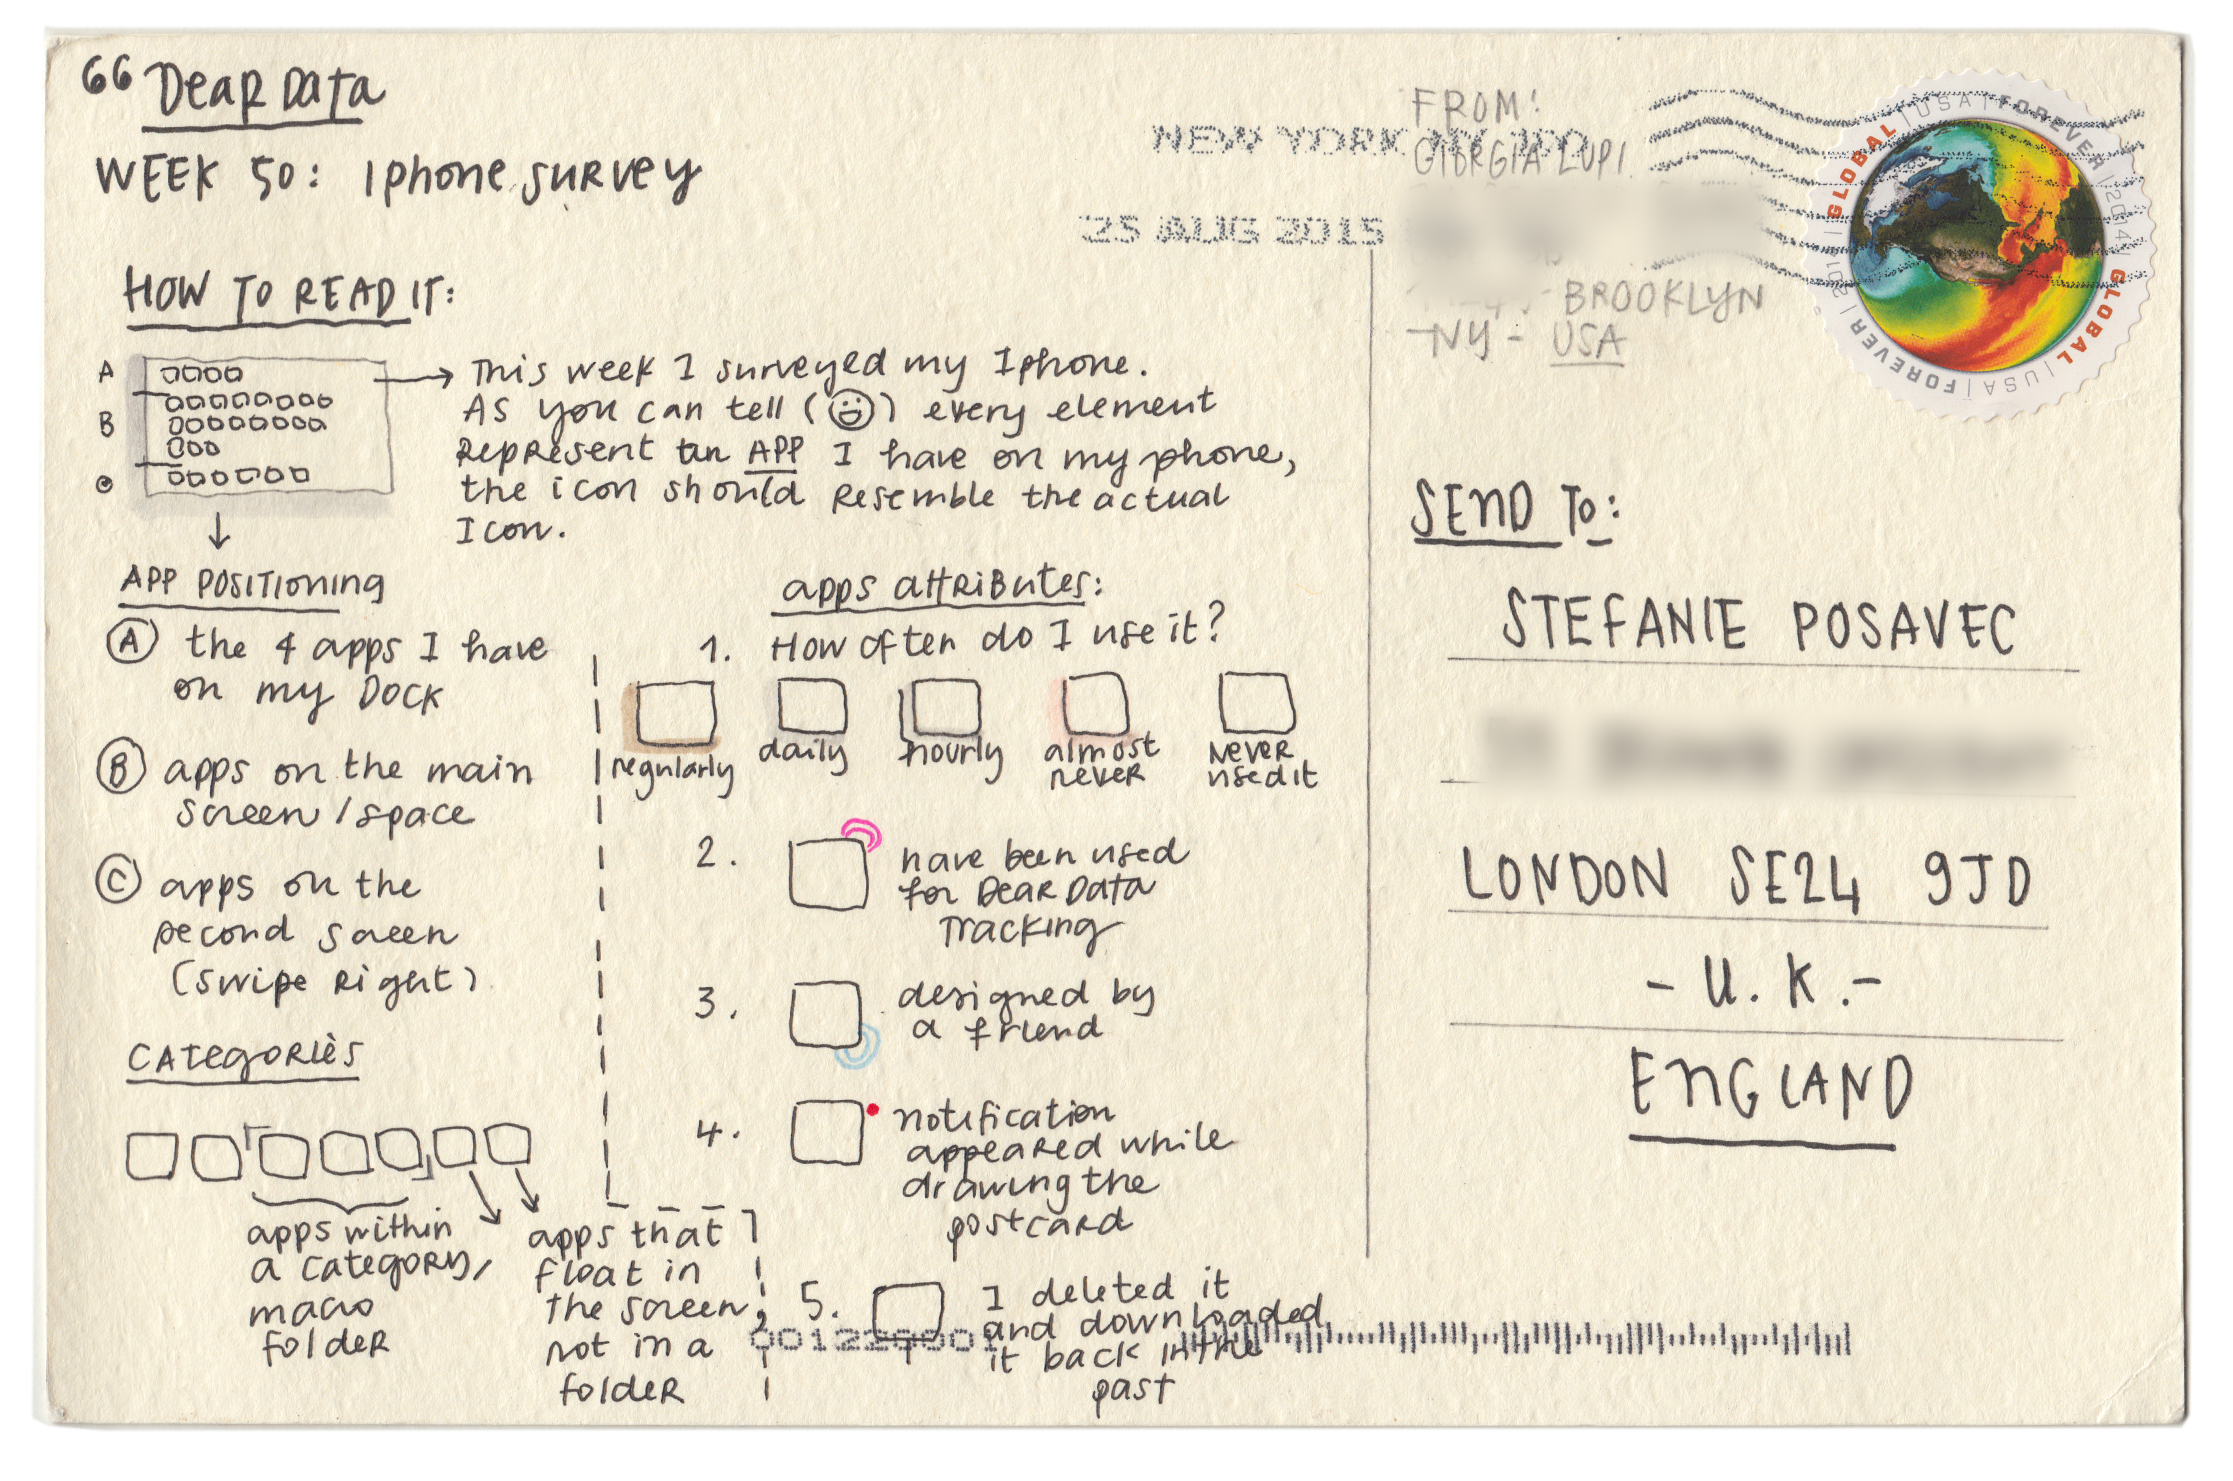 66 Dear Data
WEEK 50: Iphone survey
HOW TO READ IT:
A
B
C
This week I surveyed my Iphone.
As you can tell (😃) every element
Represent an APP I have on my phone,
the icon should Resemble the actual
Icon.
APP POSITIONING
A the 4 apps I have
on my DOCK
B apps on the main
screen / space
C apps on the
second screen
(swipe Right)
CATEGORIES
apps within
a category,
macro
folder
apps that
float in
the screen,
not in a
folder
apps attributes:
1. How often do I use it?
regularly
daily
hourly
almost
never
Never
used it
2. have been used
for Dear Data
Tracking
3. designed by
a friend
4. notification
appeared while
drawing the
postcard
5. I deleted it
and downloaded
it back in the
past
NEW YORK NY 100
25 AUG 2015
FROM:
GIORGIA LUPI
BROOKLYN
-NY- USA
GLOBAL | USA | FOREVER | 2014 | GLOBAL | USA | FOREVER | 2014 |
SEND TO:
STEFANIE POSAVEC
LONDON SE24 9JD
- U.K. -
ENGLAND